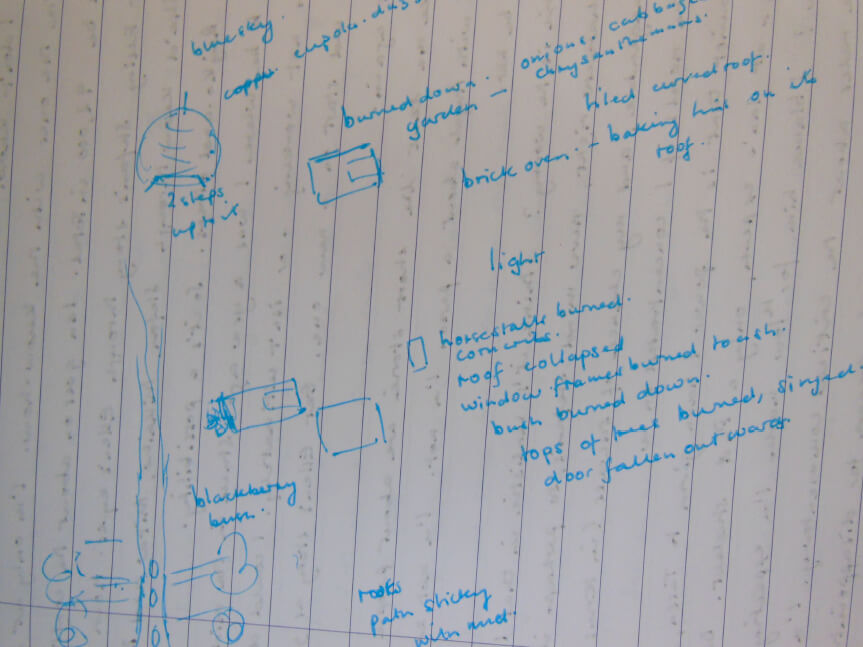 blue sky.
copper. cupola.
burned down.
garden - onions. cabbage
chrysanthemums.
tiled curved roof.
brick oven. - baking tins on its
roof.
2 steps
up to it
light
horsestalls burned.
corncribs.
roof collapsed
window frames burned to ash.
bush burned down.
tops of trees burned, singed.
door fallen outwards.
blackberry
bush.
rooks
path sticky
with mud.